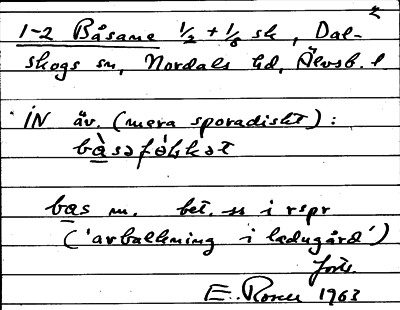 2
1-2 Båsane 1/2 + 1/8 sk, Dal-
skogs sn, Nordals hd, Älvsb. l.
IN äv. (mera sporadiskt):
bas m. bet. ss i rspr
('avbalkning i ladugård')
forts.
E. Rosell 1963